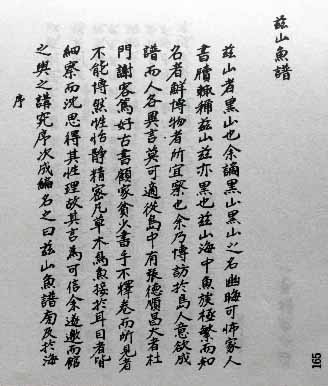 玆山魚譜
玆山者黑山也余謫黑山黑山之名幽晦可怖家人
書牘輒稱玆山玆亦黑也玆山海中魚族極繁而知
名者鮮博物者所宜察也余乃博訪於島人意欲成
譜而人各異言莫可適從島中有張德順昌大者杜
門謝客篤好古書顧家貧少書手不釋卷而所見者
不能博然性恬靜精密凡草木鳥魚接於耳目者皆
細察而沈思得其性理故其言為可信余遂邀而館
之與之講究序次成編名之曰玆山魚譜旁及於海
序
165